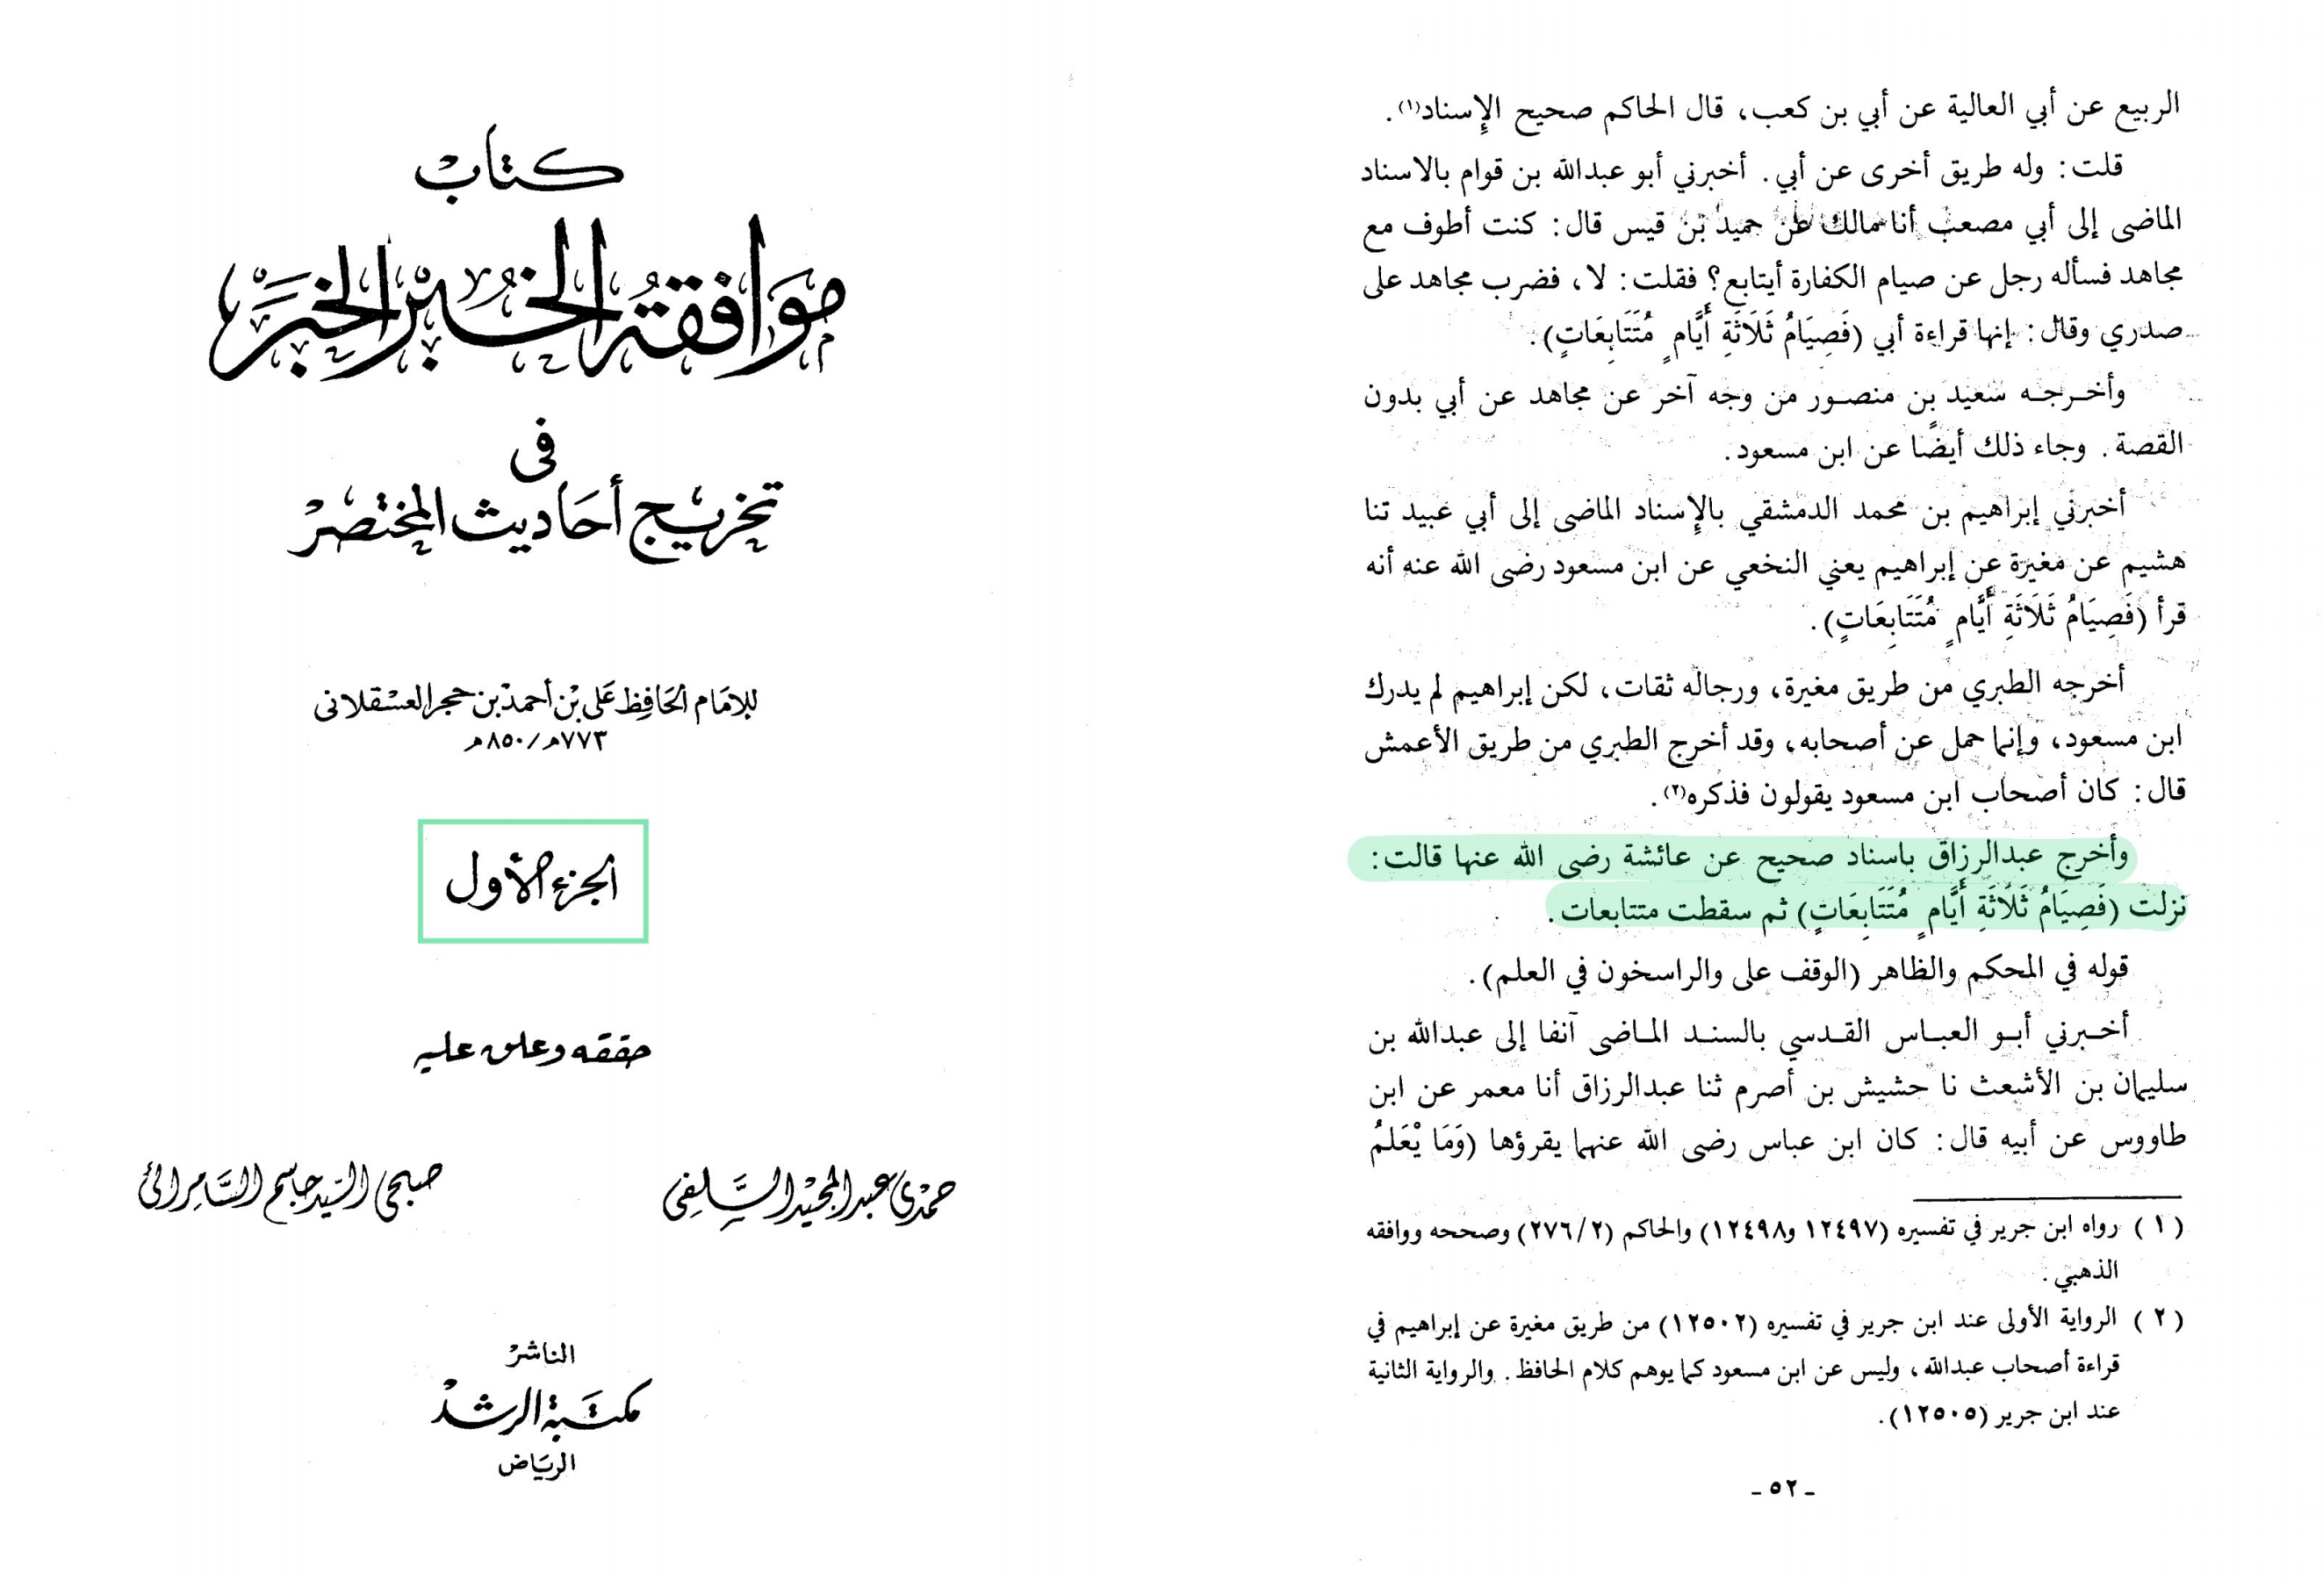 كتاب
موافقة الخُبر الخَبَر
فى
تخريج أحاديث المختصر
للإمَام الحَافِظ عَلى بْن أحمد بن حجر العسْقلانى
٧٧٣هـ/٨٥٠هـ
الجزء الأول
حققه وعلق عليه
حمدي عبد المجيد السَّلفي
صبحي السَّيد جاسم السَّامرائي
الناشر
مكتبة الرشد
الريَاض
الربيع عن أبي العالية عن أبي بن كعب، قال الحاكم صحيح الإِسناد(١).
قلت: وله طريق أخرى عن أبي. أخبرني أبو عبدالله بن قوام بالاسناد
الماضى إلى أبي مصعب أنا مالك عن حميد بن قيس قال: كنت أطوف مع
مجاهد فسأله رجل عن صيام الكفارة أيتابع؟ فقلت: لا، فضرب مجاهد على
صدري وقال: إنها قراءة أبي (فَصِيَامُ ثَلَاثَةِ أَيَّامٍ مُتَتَابِعَاتٍ).
وأخرجه سعيد بن منصور من وجه آخر عن مجاهد عن أبي بدون
القصة. وجاء ذلك أيضًا عن ابن مسعود.
أخبرني إبراهيم بن محمد الدمشقي بالإِسناد الماضى إلى أبي عبيد تنا
هشيم عن مغيرة عن إبراهيم يعني النخعي عن ابن مسعود رضى الله عنه أنه
قرأ (فَصِيَامُ ثَلَاثَةِ أَيَّامٍ مُتَتَابِعَاتٍ).
أخرجه الطبري من طريق مغيرة، ورجاله ثقات، لكن إبراهيم لم يدرك
ابن مسعود، وإنما حمل عن أصحابه، وقد أخرج الطبري من طريق الأعمش
قال: كان أصحاب ابن مسعود يقولون فذكره(٢).
وأخرج عبدالرزاق باسناد صحيح عن عائشة رضى الله عنها قالت:
نزلت (فَصِيَامُ ثَلَاثَةِ أَيَّامٍ مُتَتَابِعَاتٍ) ثم سقطت متتابعات.
قوله في المحكم والظاهر (الوقف على والراسخون في العلم).
أخبرني أبو العباس القدسي بالسند الماضى آنفا إلى عبدالله بن
سليمان بن الأشعث نا حشيش بن أصرم ثنا عبدالرزاق أنا معمر عن ابن
طاووس عن أبيه قال: كان ابن عباس رضى الله عنهما يقرؤها (وَمَا يْعَلمُ
(١) رواه ابن جرير في تفسيره (١٢٤٩٧ و١٢٤٩٨) والحاكم (٢٧٦/٢) وصححه ووافقه
الذهبي.
(٢) الرواية الأولى عند ابن جرير في تفسيره (١٢٥٠٢) من طريق مغيرة عن إبراهيم في
قراءة أصحاب عبدالله، وليس عن ابن مسعود كما يوهم كلام الحافظ. والرواية الثانية
عند ابن جرير (١٢٥٠٥).
ـ ٥٢ ـ